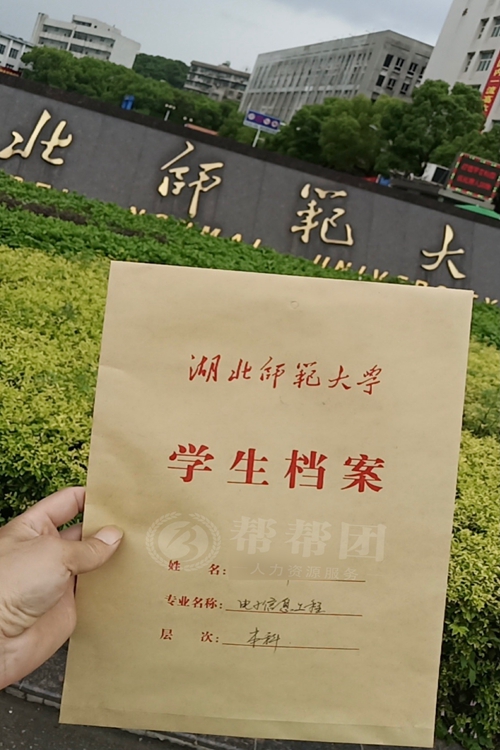 北 师 範 大
NORMAL UNIVERSITY
湖北师範大学
学生档案
帮帮团
人力资源服务
姓 名：
专业名称：电子信息工程
层 次：本科